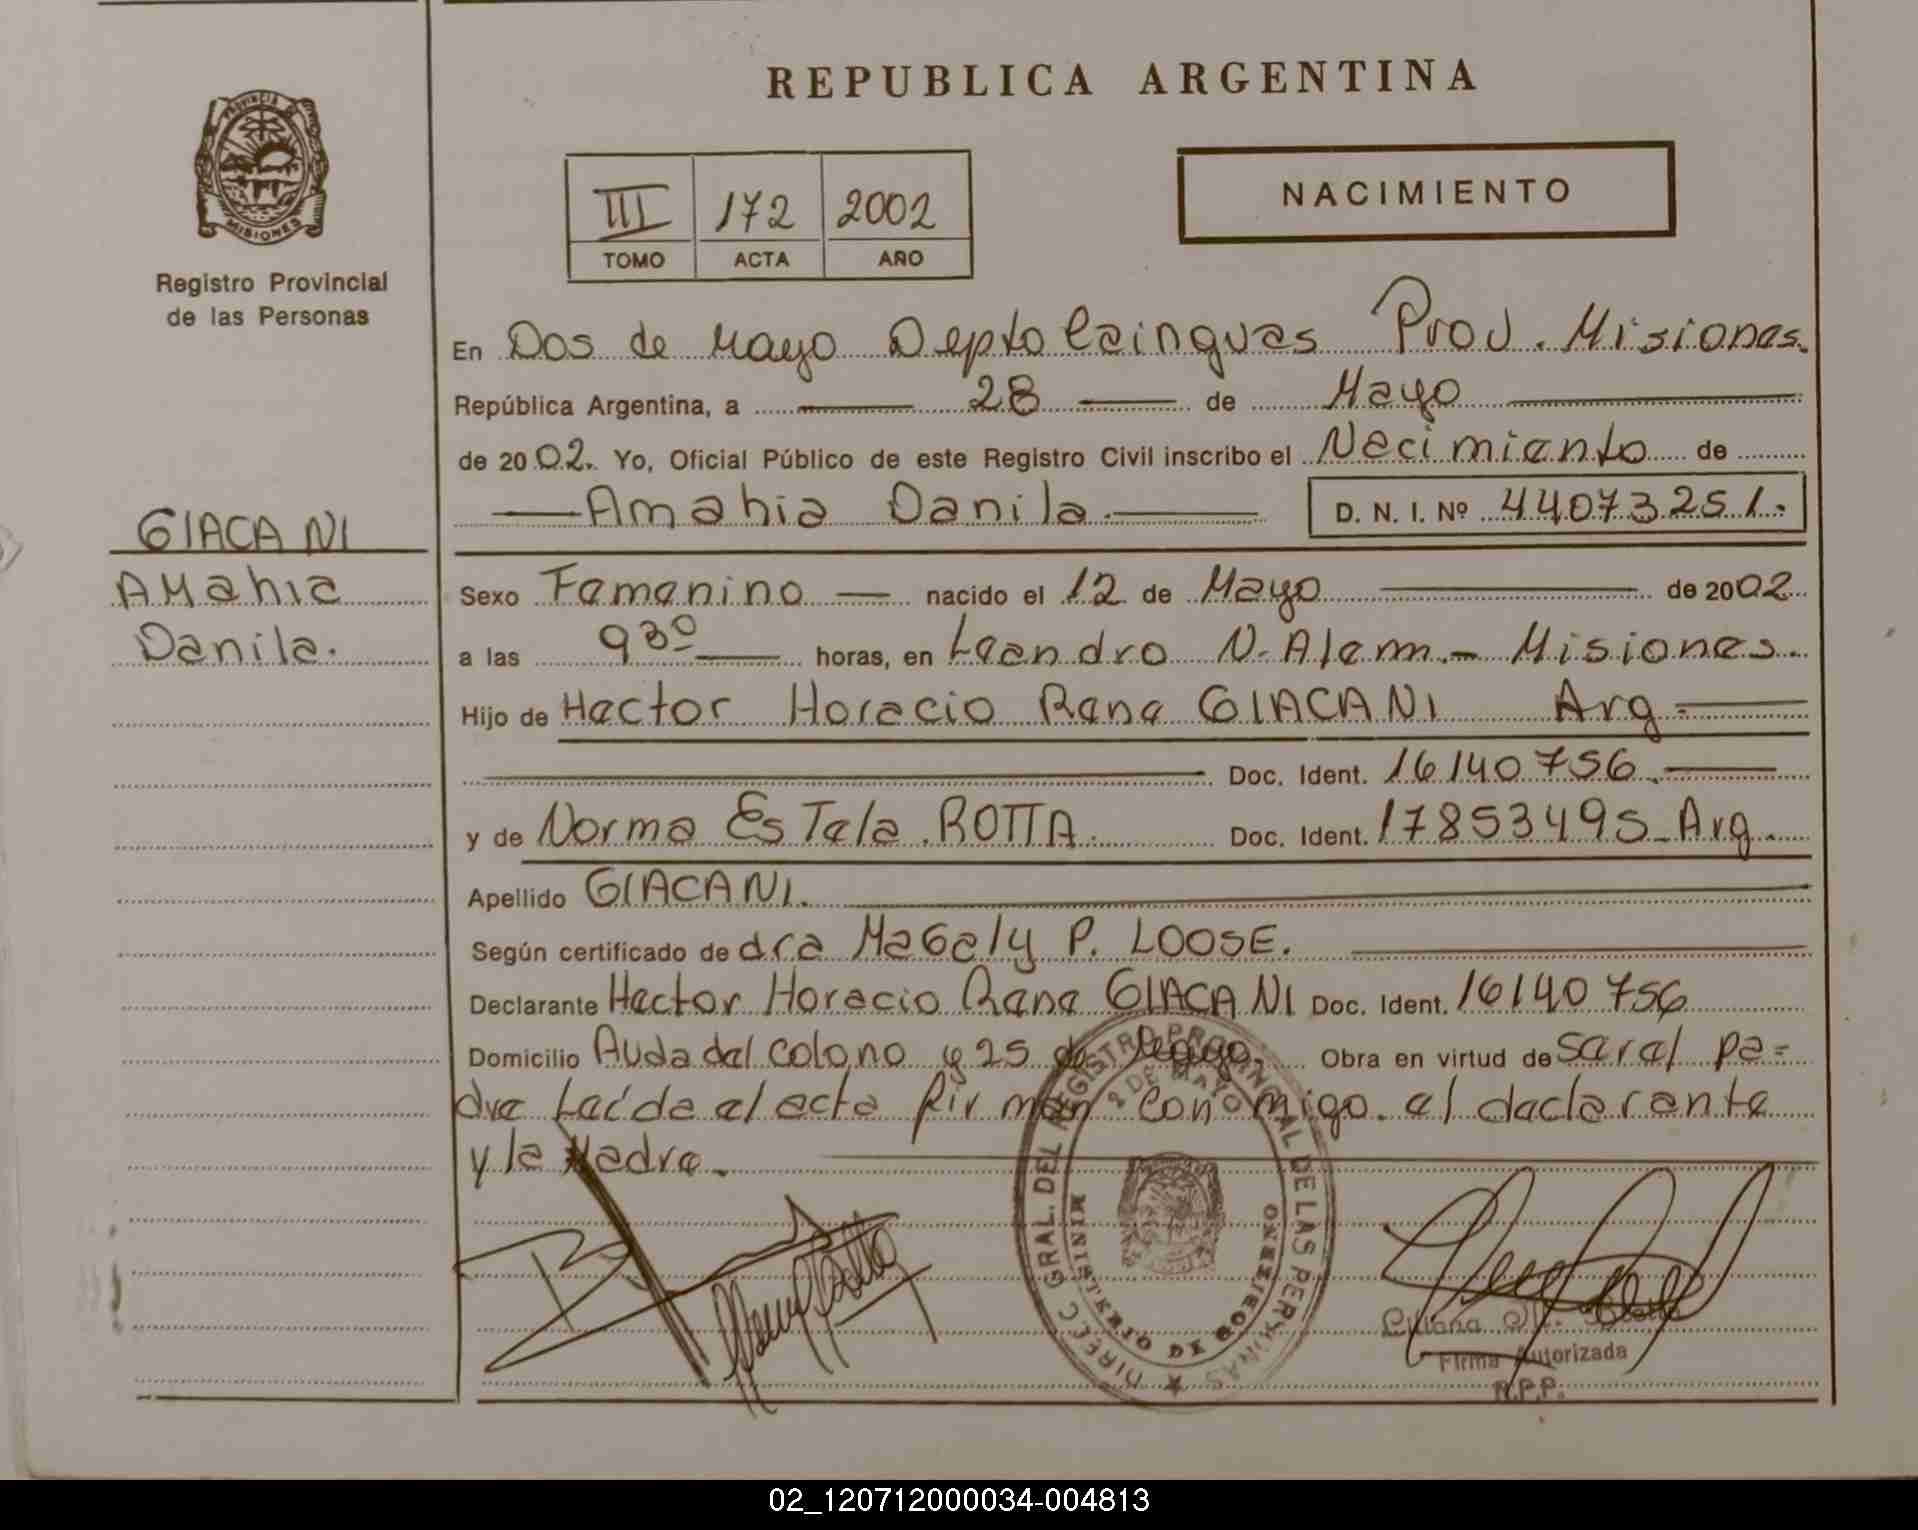 REPUBLICA ARGENTINA
PROVINCIA DE
MISIONES
Registro Provincial
de las Personas
III 172 2002
TOMO ACTA AÑO
NACIMIENTO
En Dos de Mayo Depto Cainguas Prov. Misiones.
República Argentina, a 28 de Mayo
de 2002. Yo, Oficial Público de este Registro Civil inscribo el Nacimiento de
Amahia Danila. D. N. I. Nº 44073251.
GIACANI
Amahia
Danila.
Sexo Femenino nacido el 12 de Mayo de 2002
a las 930 horas, en Leandro N. Alem.- Misiones.
Hijo de Hector Horacio Rene GIACANI Arg.
Doc. Ident. 16140756.
y de Norma EsTela ROTTA. Doc. Ident. 17853495_Arg.
Apellido GIACANI.
Según certificado de dra MaGaly P. LOOSE.
Declarante Hector Horacio Rene GIACANI Doc. Ident. 16140756
Domicilio Avda del colono y 25 de Mayo. Obra en virtud de ser el pa=
dre Leída el acta firman conmigo. el declarante
y la Madre.
DIREC. GRAL. DEL REGISTRO PROVINCIAL DE LAS PERSONAS
2 DE MAYO
MINISTERIO DE GOBIERNO
Firma Autorizada
R.P.P.
02_120712000034-004813